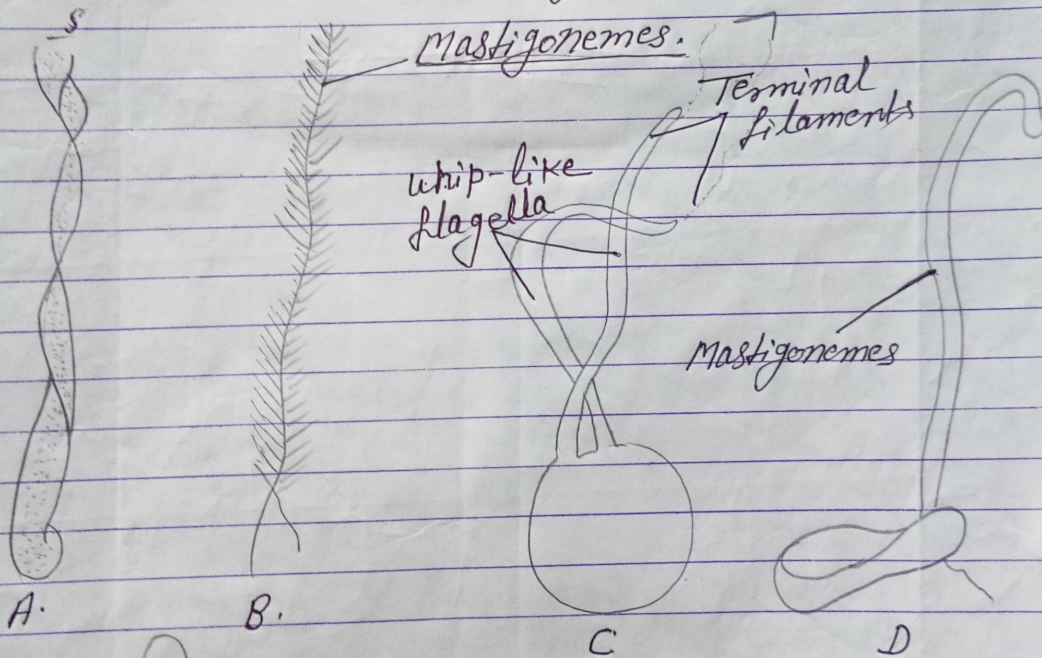 S
Mastigonemes.
Terminal
filaments
whip-like
flagella
Mastigonemes
A.
B.
C
D